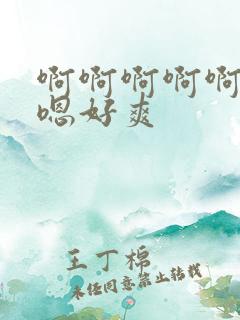 啊啊啊啊啊
嗯好爽
王丁棉
未经同意禁止转载